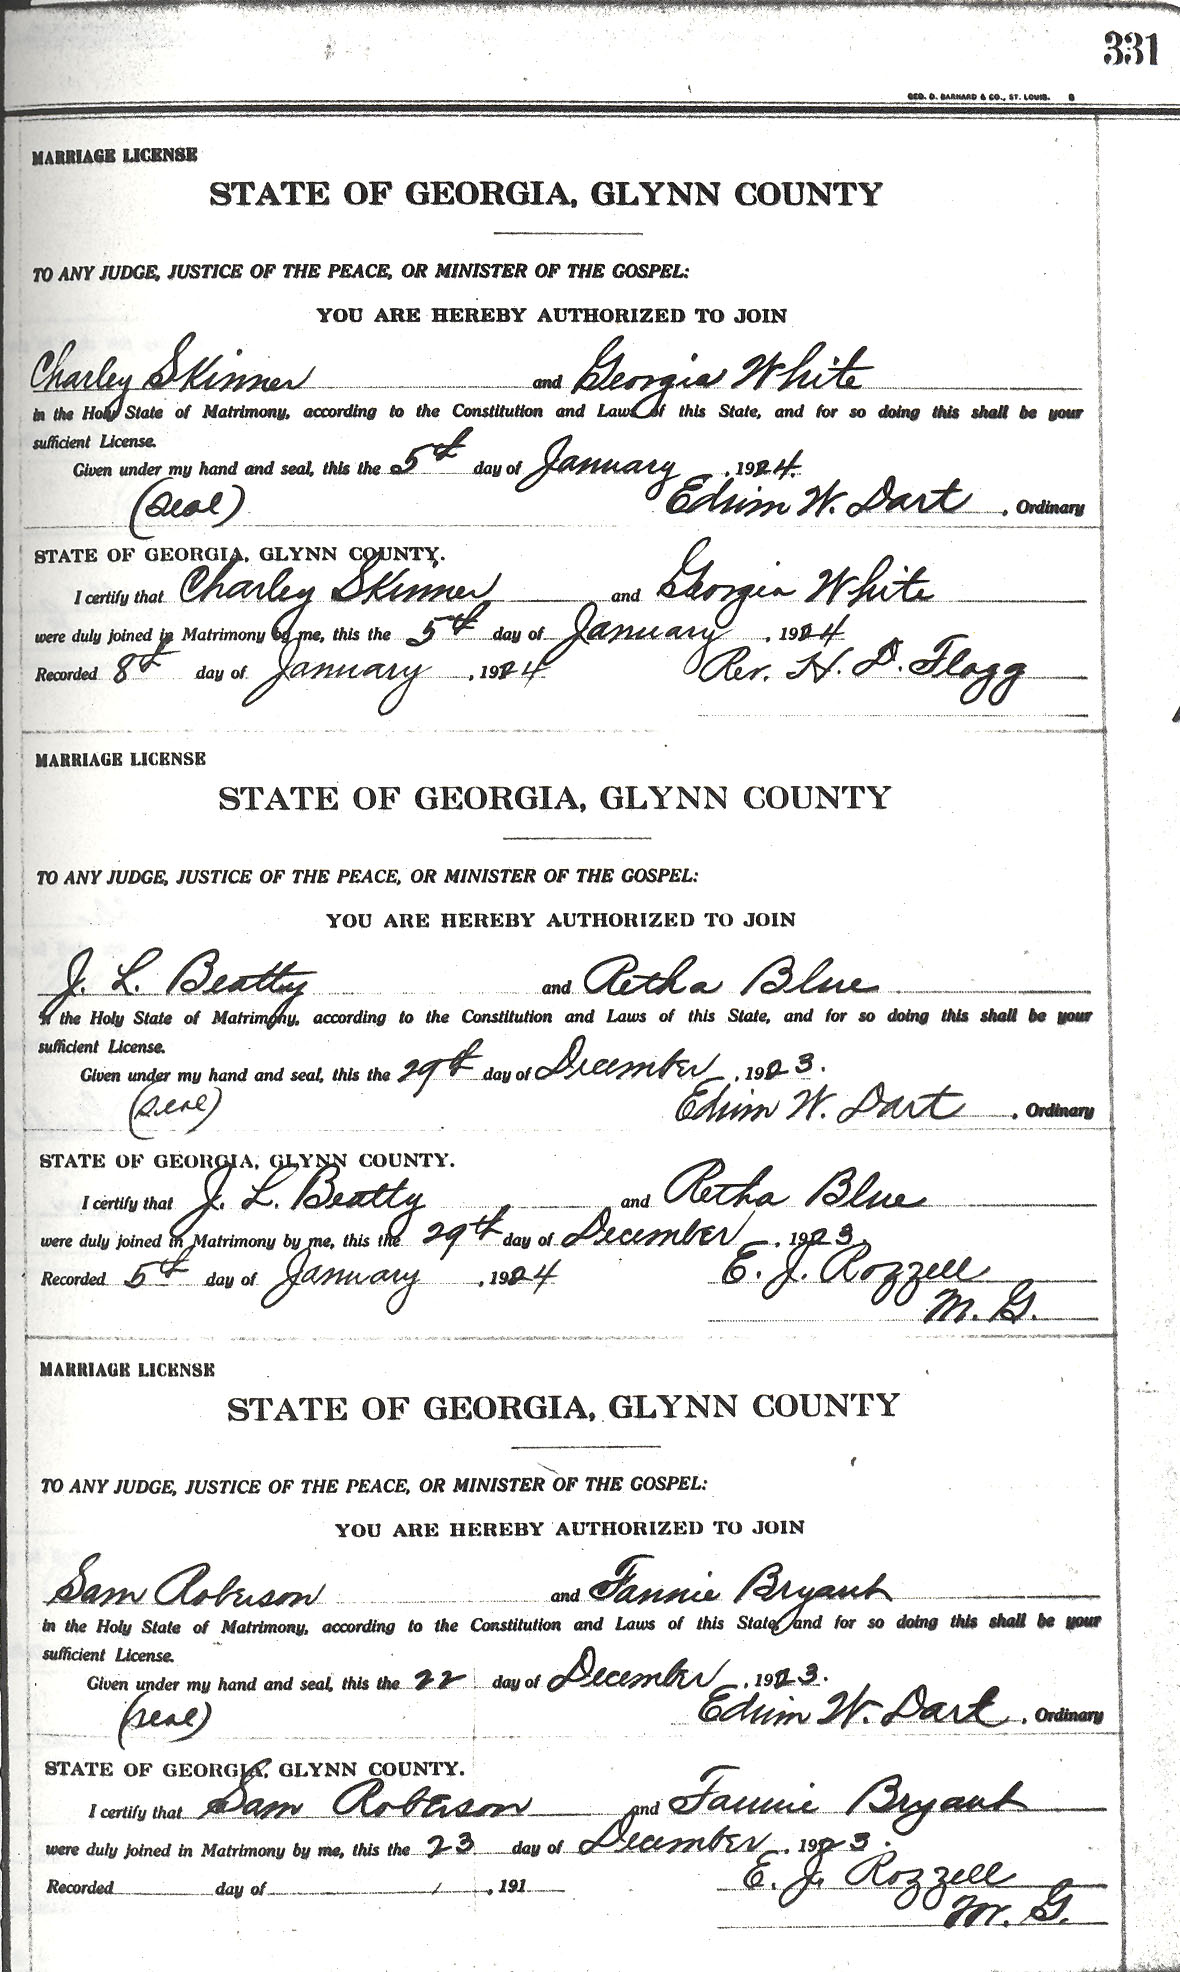 331
GEO. D. BARNARD & CO., ST. LOUIS. B
MARRIAGE LICENSE
STATE OF GEORGIA, GLYNN COUNTY
TO ANY JUDGE, JUSTICE OF THE PEACE, OR MINISTER OF THE GOSPEL:
YOU ARE HEREBY AUTHORIZED TO JOIN
Charley Skinner and Georgia White
in the Holy State of Matrimony, according to the Constitution and Laws of this State, and for so doing this shall be your
sufficient License.
Given under my hand and seal, this the 5th day of January, 1924.
(seal) Edwin W. Dart, Ordinary
STATE OF GEORGIA, GLYNN COUNTY.
I certify that Charley Skinner and Georgia White
were duly joined in Matrimony by me, this the 5th day of January, 1924
Recorded 8th day of January, 1924 Rev. H. D. Flagg
MARRIAGE LICENSE
STATE OF GEORGIA, GLYNN COUNTY
TO ANY JUDGE, JUSTICE OF THE PEACE, OR MINISTER OF THE GOSPEL:
YOU ARE HEREBY AUTHORIZED TO JOIN
J. L. Beatty and Retha Blue
in the Holy State of Matrimony, according to the Constitution and Laws of this State, and for so doing this shall be your
sufficient License.
Given under my hand and seal, this the 29th day of December, 1923.
(seal) Edwin W. Dart, Ordinary
STATE OF GEORGIA, GLYNN COUNTY.
I certify that J. L. Beatty and Retha Blue
were duly joined in Matrimony by me, this the 29th day of December, 1923.
Recorded 5th day of January, 1924 E. J. Rozzell
M. G.
MARRIAGE LICENSE
STATE OF GEORGIA, GLYNN COUNTY
TO ANY JUDGE, JUSTICE OF THE PEACE, OR MINISTER OF THE GOSPEL:
YOU ARE HEREBY AUTHORIZED TO JOIN
Sam Roberson and Fannie Bryant
in the Holy State of Matrimony, according to the Constitution and Laws of this State, and for so doing this shall be your
sufficient License.
Given under my hand and seal, this the 22 day of December, 1923.
(seal) Edwin W. Dart, Ordinary
STATE OF GEORGIA, GLYNN COUNTY.
I certify that Sam Roberson and Fannie Bryant
were duly joined in Matrimony by me, this the 23 day of December, 1923.
Recorded day of , 191 E. J. Rozzell
M. G.